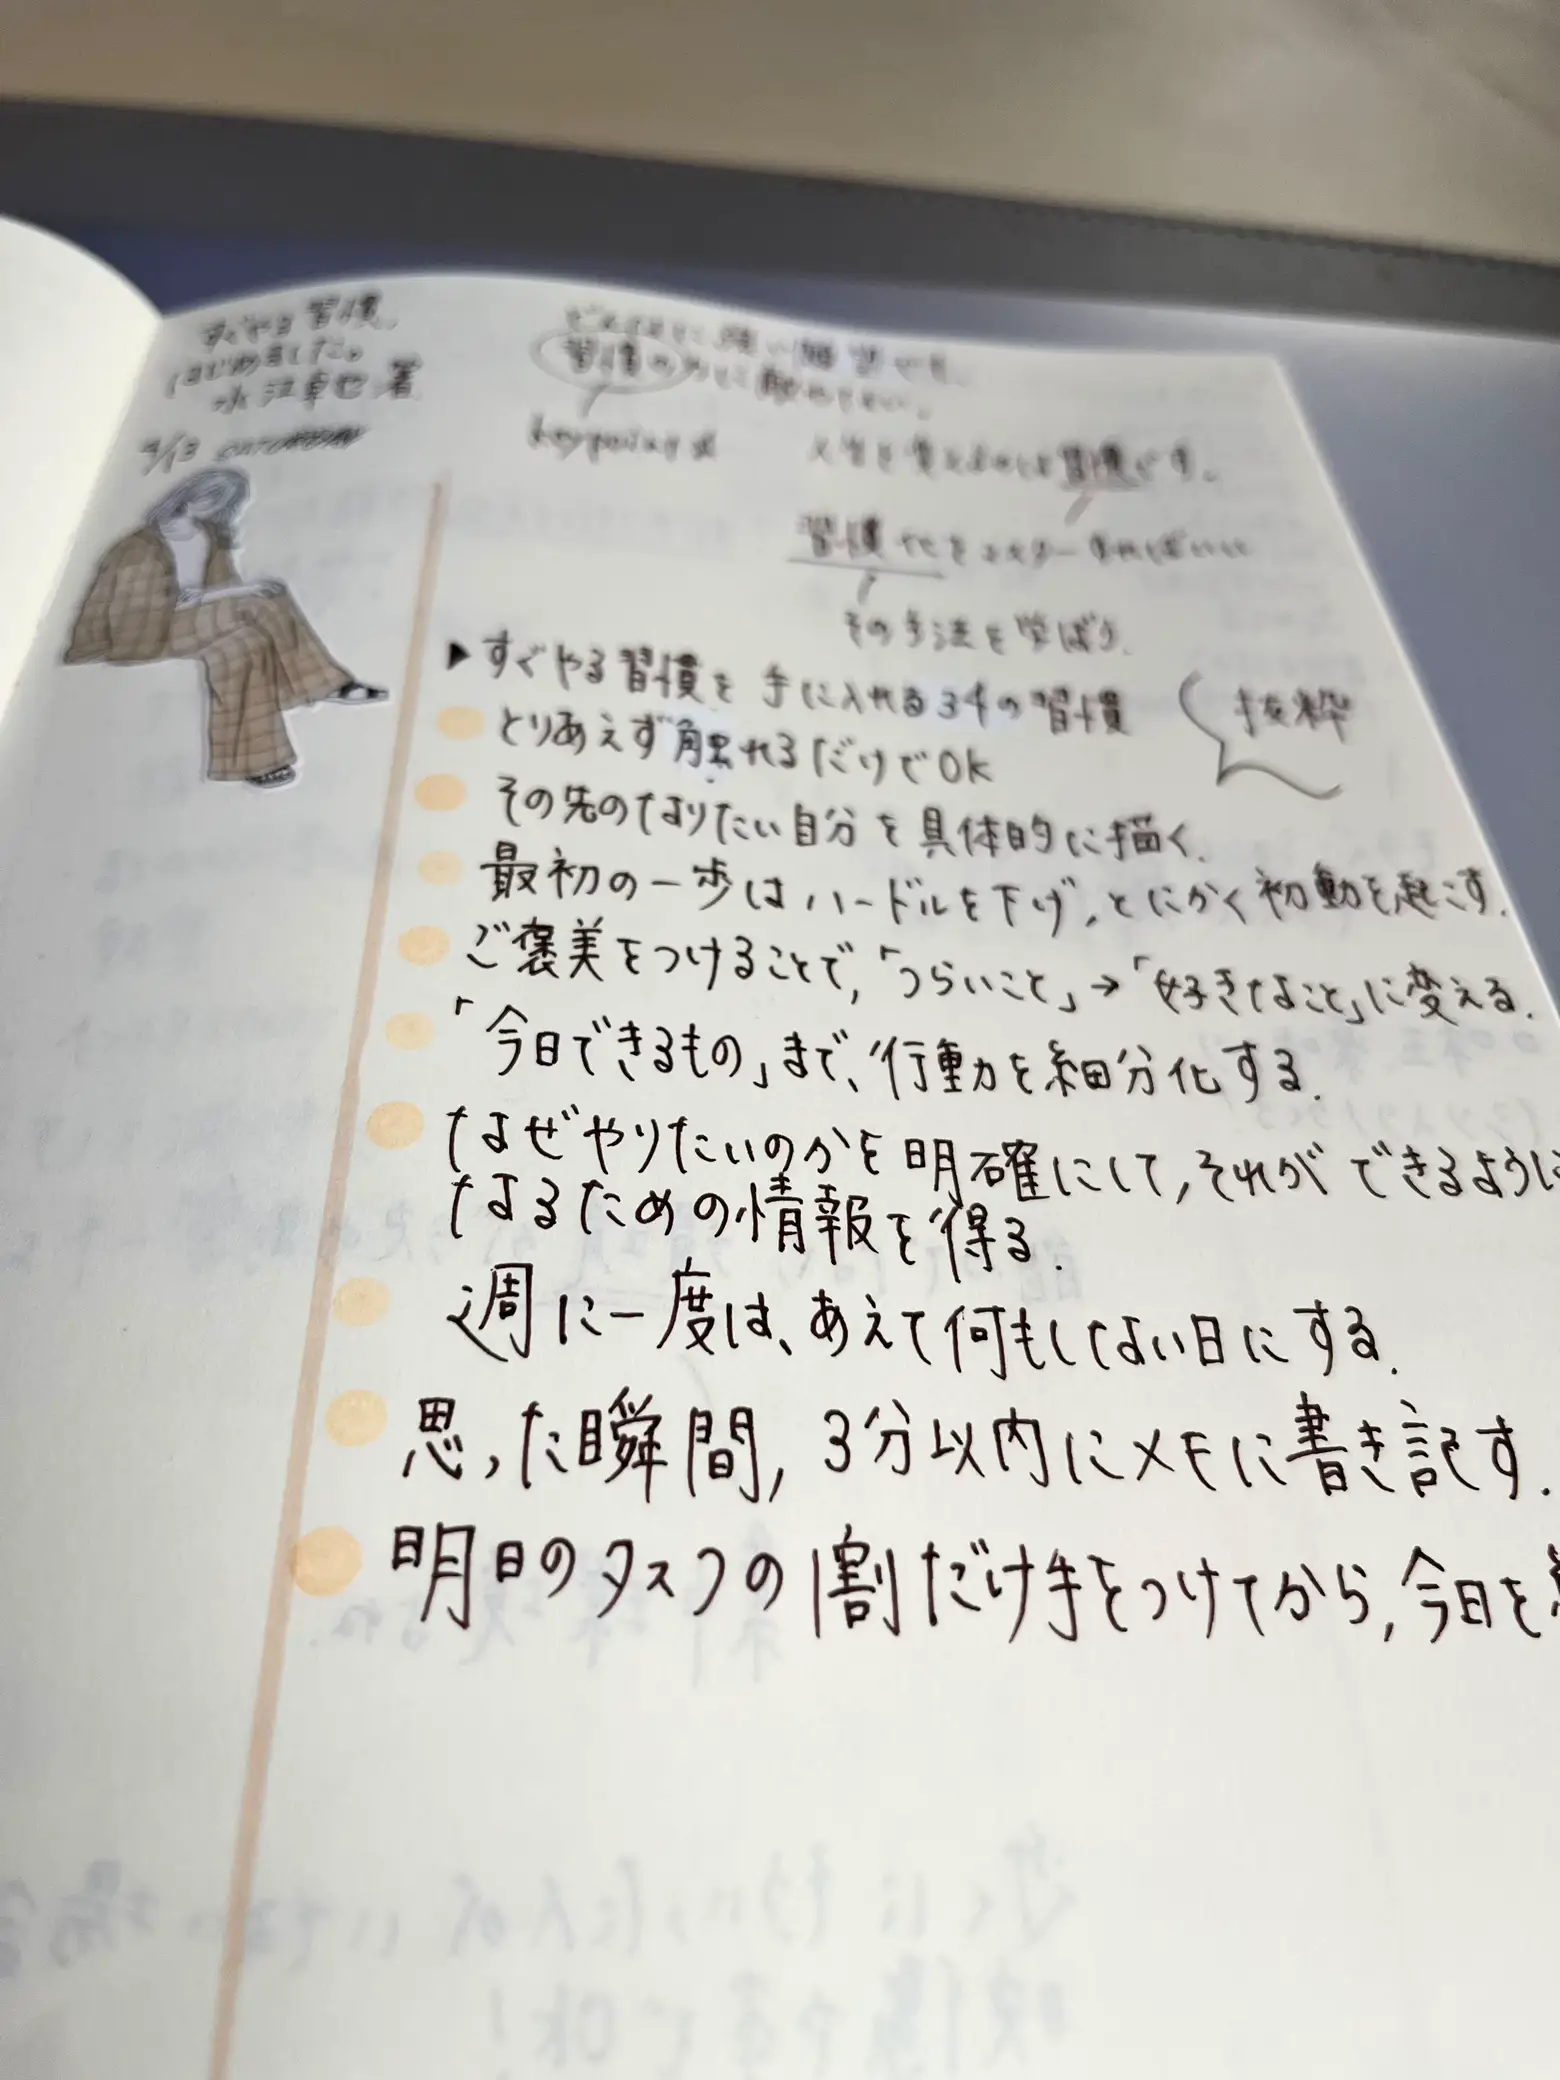 すぐやる習慣、
はじめました。
水江卓也 著
9/13 SATURDAY
習慣の力には敵わない。
keypoint☆
人生を変えるのは習慣です。
習慣化をマスターすればいい
その手法を学ぼう.
▶すぐやる習慣を手に入れる34の習慣
抜粋
とりあえず触れるだけでOK
その先のなりたい自分を具体的に描く.
最初の一歩はハードルを下げ,とにかく初動を起こす.
ご褒美をつけることで,「つらいこと」→「好きなこと」に変える.
「今日できるもの」まで、行動を細分化する.
なぜやりたいのかを明確にして,それができるように
なるための情報を得る.
週に一度は、あえて何もしない日にする.
思った瞬間,3分以内にメモに書き記す.
明日のタスクの1割だけ手をつけてから,今日を